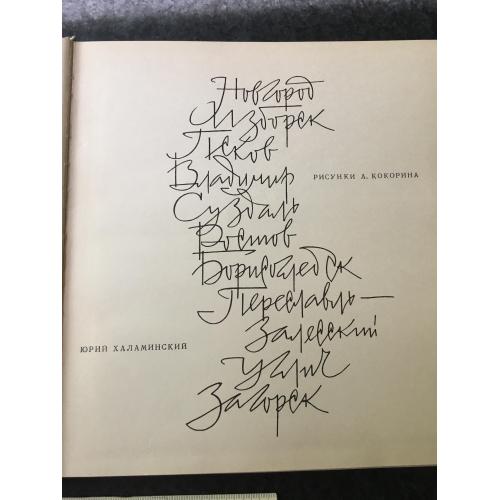 Новгород
Изборск
Псков
Владимир
РИСУНКИ А. КОКОРИНА
Суздаль
Ростов
Борисоглебск
Переславль —
Залесский
ЮРИЙ ХАЛАМИНСКИЙ
Углич
Загорск